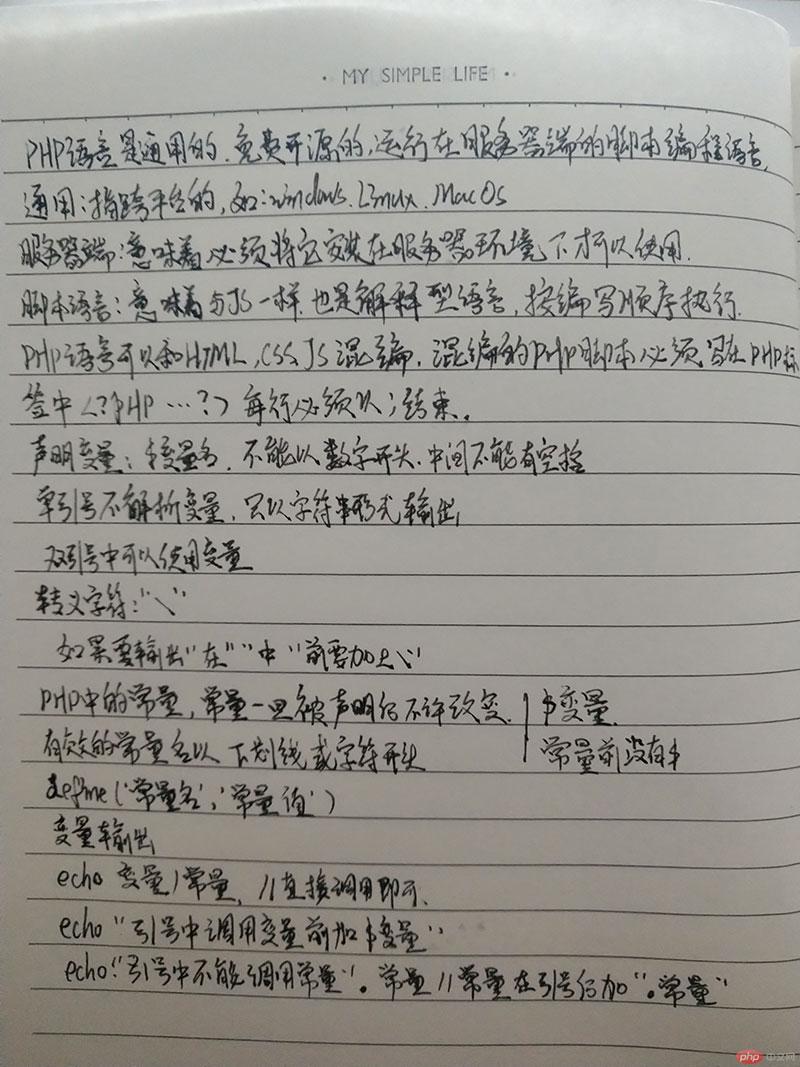 · MY SIMPLE LIFE ·
PHP语言是通用的、免费开源的,运行在服务器端的脚本编程语言,
通用:指跨平台的,如:windows、Linux、MacOs
服务器端:意味着必须将它安装在服务器环境下才可以使用.
脚本语言:意味着与JS一样,也是解释型语言,按编写顺序执行.
PHP语言可以和HTML,CSS,JS混编,混编的PHP脚本必须写在PHP标
签中<?PHP …?> 每行必须以;结束。
声明变量:$变量名,不能以数字开头.中间不能有空格
单引号不解析变量,只以字符串形式输出,
双引号中可以使用变量
转义字符:"\"
如果要输出"在" "中 "前要加上\"
PHP中的常量,常量一旦被声明后不许改变. $变量.
有效的常量名以下划线或字符开头 常量前没有$
define('常量名','常量值')
变量输出
echo 变量/常量, //直接调用即可.
echo "引号中调用变量前加$变量"
echo "引号中不能调用常量"。常量 //常量在引号后加"。常量"
php 中文网